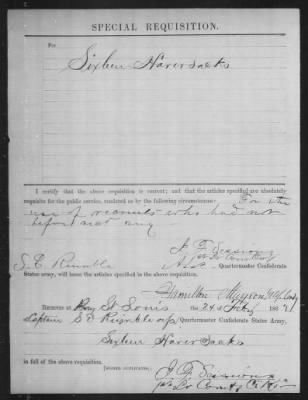 SPECIAL REQUISITION.
For
Sixteen Haversacks
I certify that the above requisition is correct; and that the articles specified are absolutely
requisite for the public service, rendered so by the following circumstances: For the
use of recruits who had not
before not any
J. F. Sessions
S. E. Rumble
A. , Quartermaster Confederate
States army, will issue the articles specified in the above requisition.
Hamilton Mayson
RECEIVED at Bay St Louis the 24 of Feby 186
Captain S E Rumble Quartermaster Confederate States Army,
Sixteen Haversacks
in full of the above requisition.
[SIGNED DUPLICATES.]
J. F. Sessions